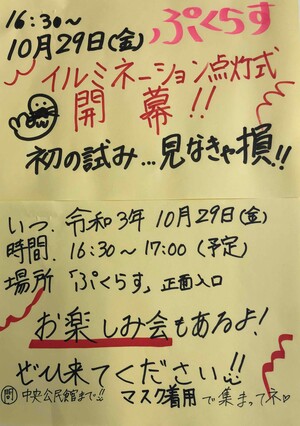 16:30〜
10月29日(金) ぷくらす
イルミネーション点灯式
開 幕!!
初の試み…見なきゃ損!!
いつ. 令和3年 10月29日(金)
時間. 16:30〜17:00 (予定)
場所 「ぷくらす」正面入口
お楽しみ会もあるよ!
ぜひ来てください!!
問 中央公民館まで!! マスク着用で集まってネ♡